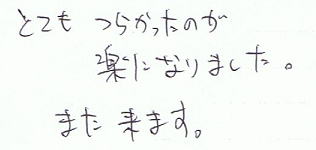 とても つらかったのが
楽になりました。
また 来ます。